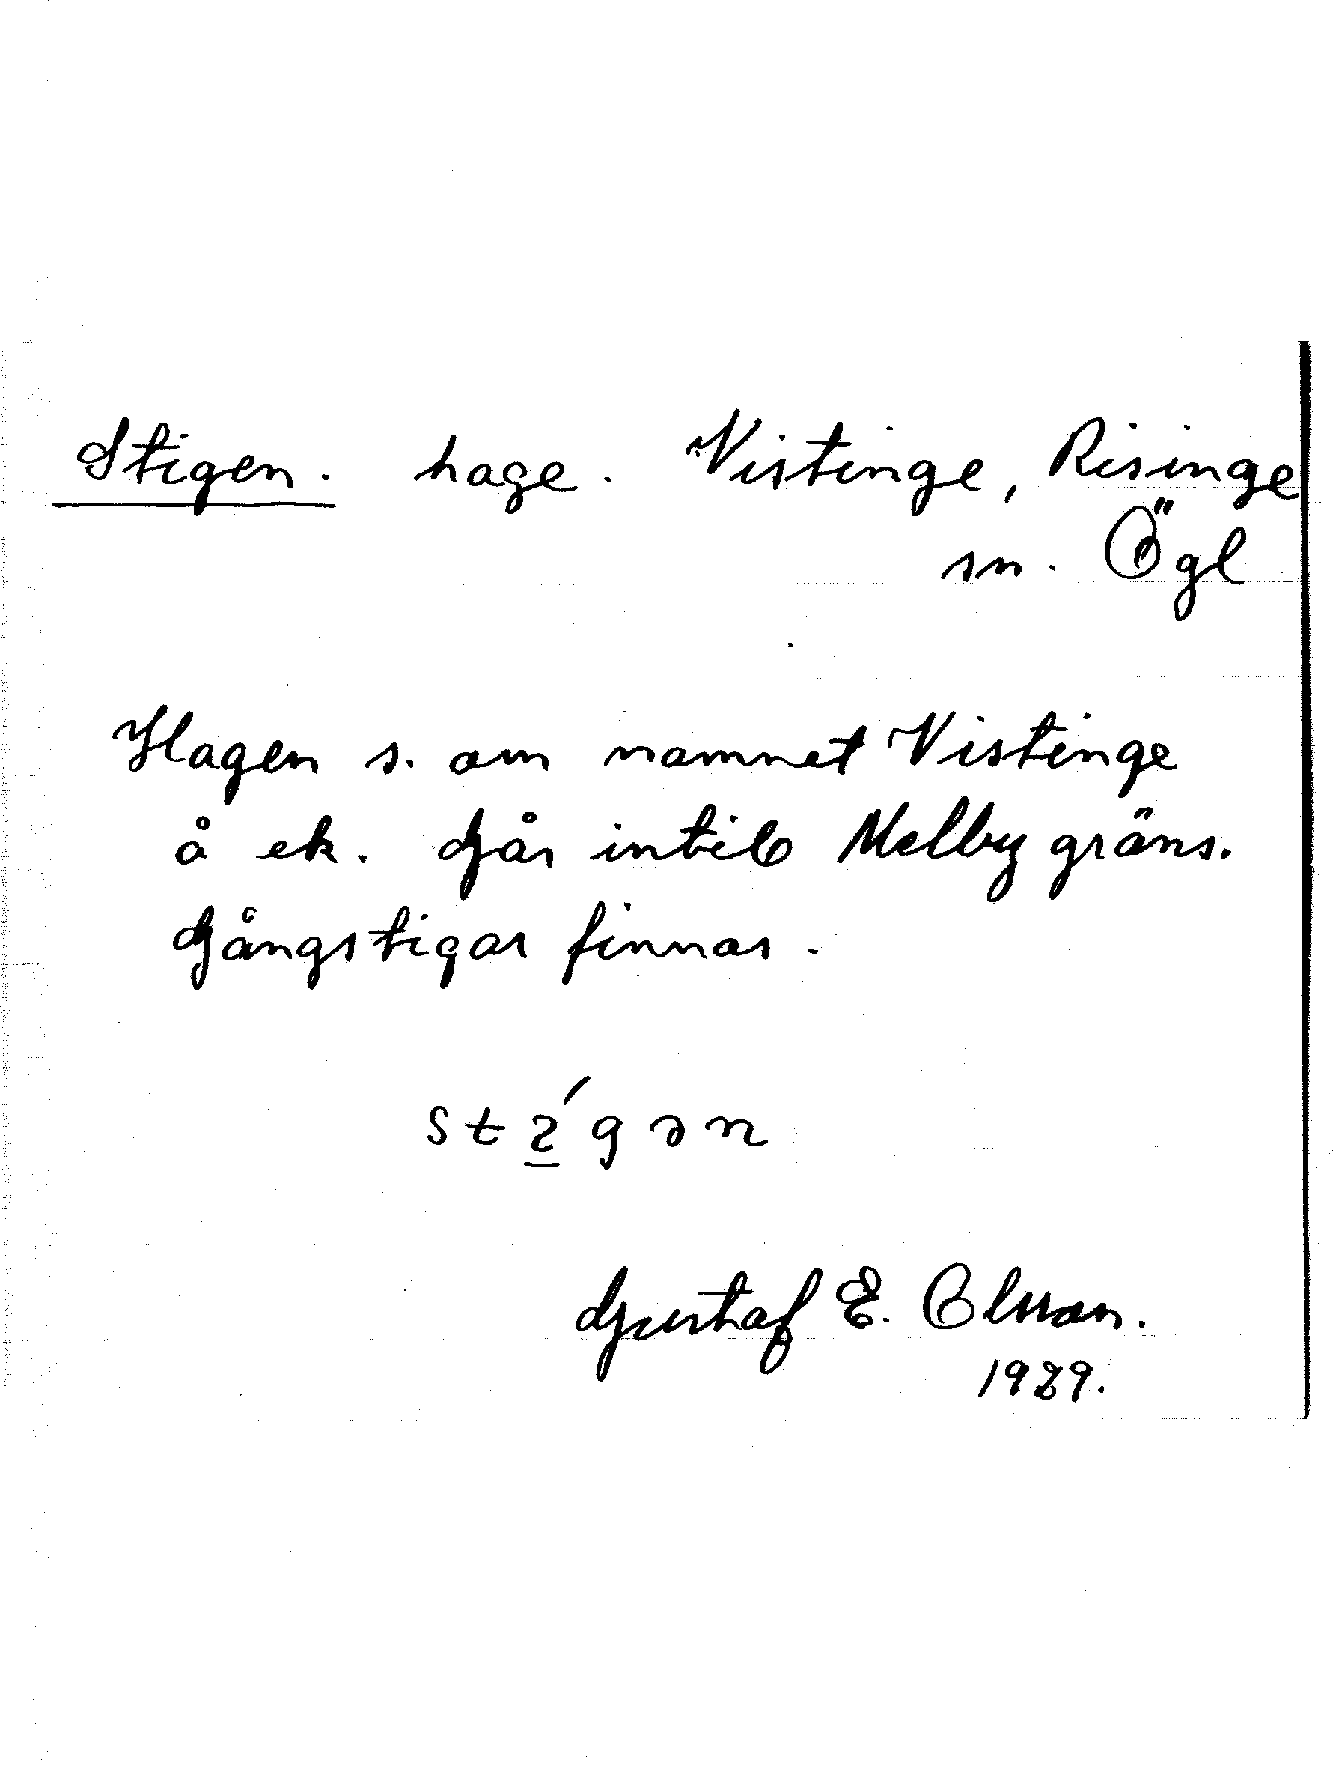 Stigen. hage. Vistinge, Risinge
sn. Ögl
Hagen s. om namnet Vistinge
å ek. Går intill Melby gräns.
Gångstigar finnas.
stı̱́gən
Gustaf E. Olsson.
1929.